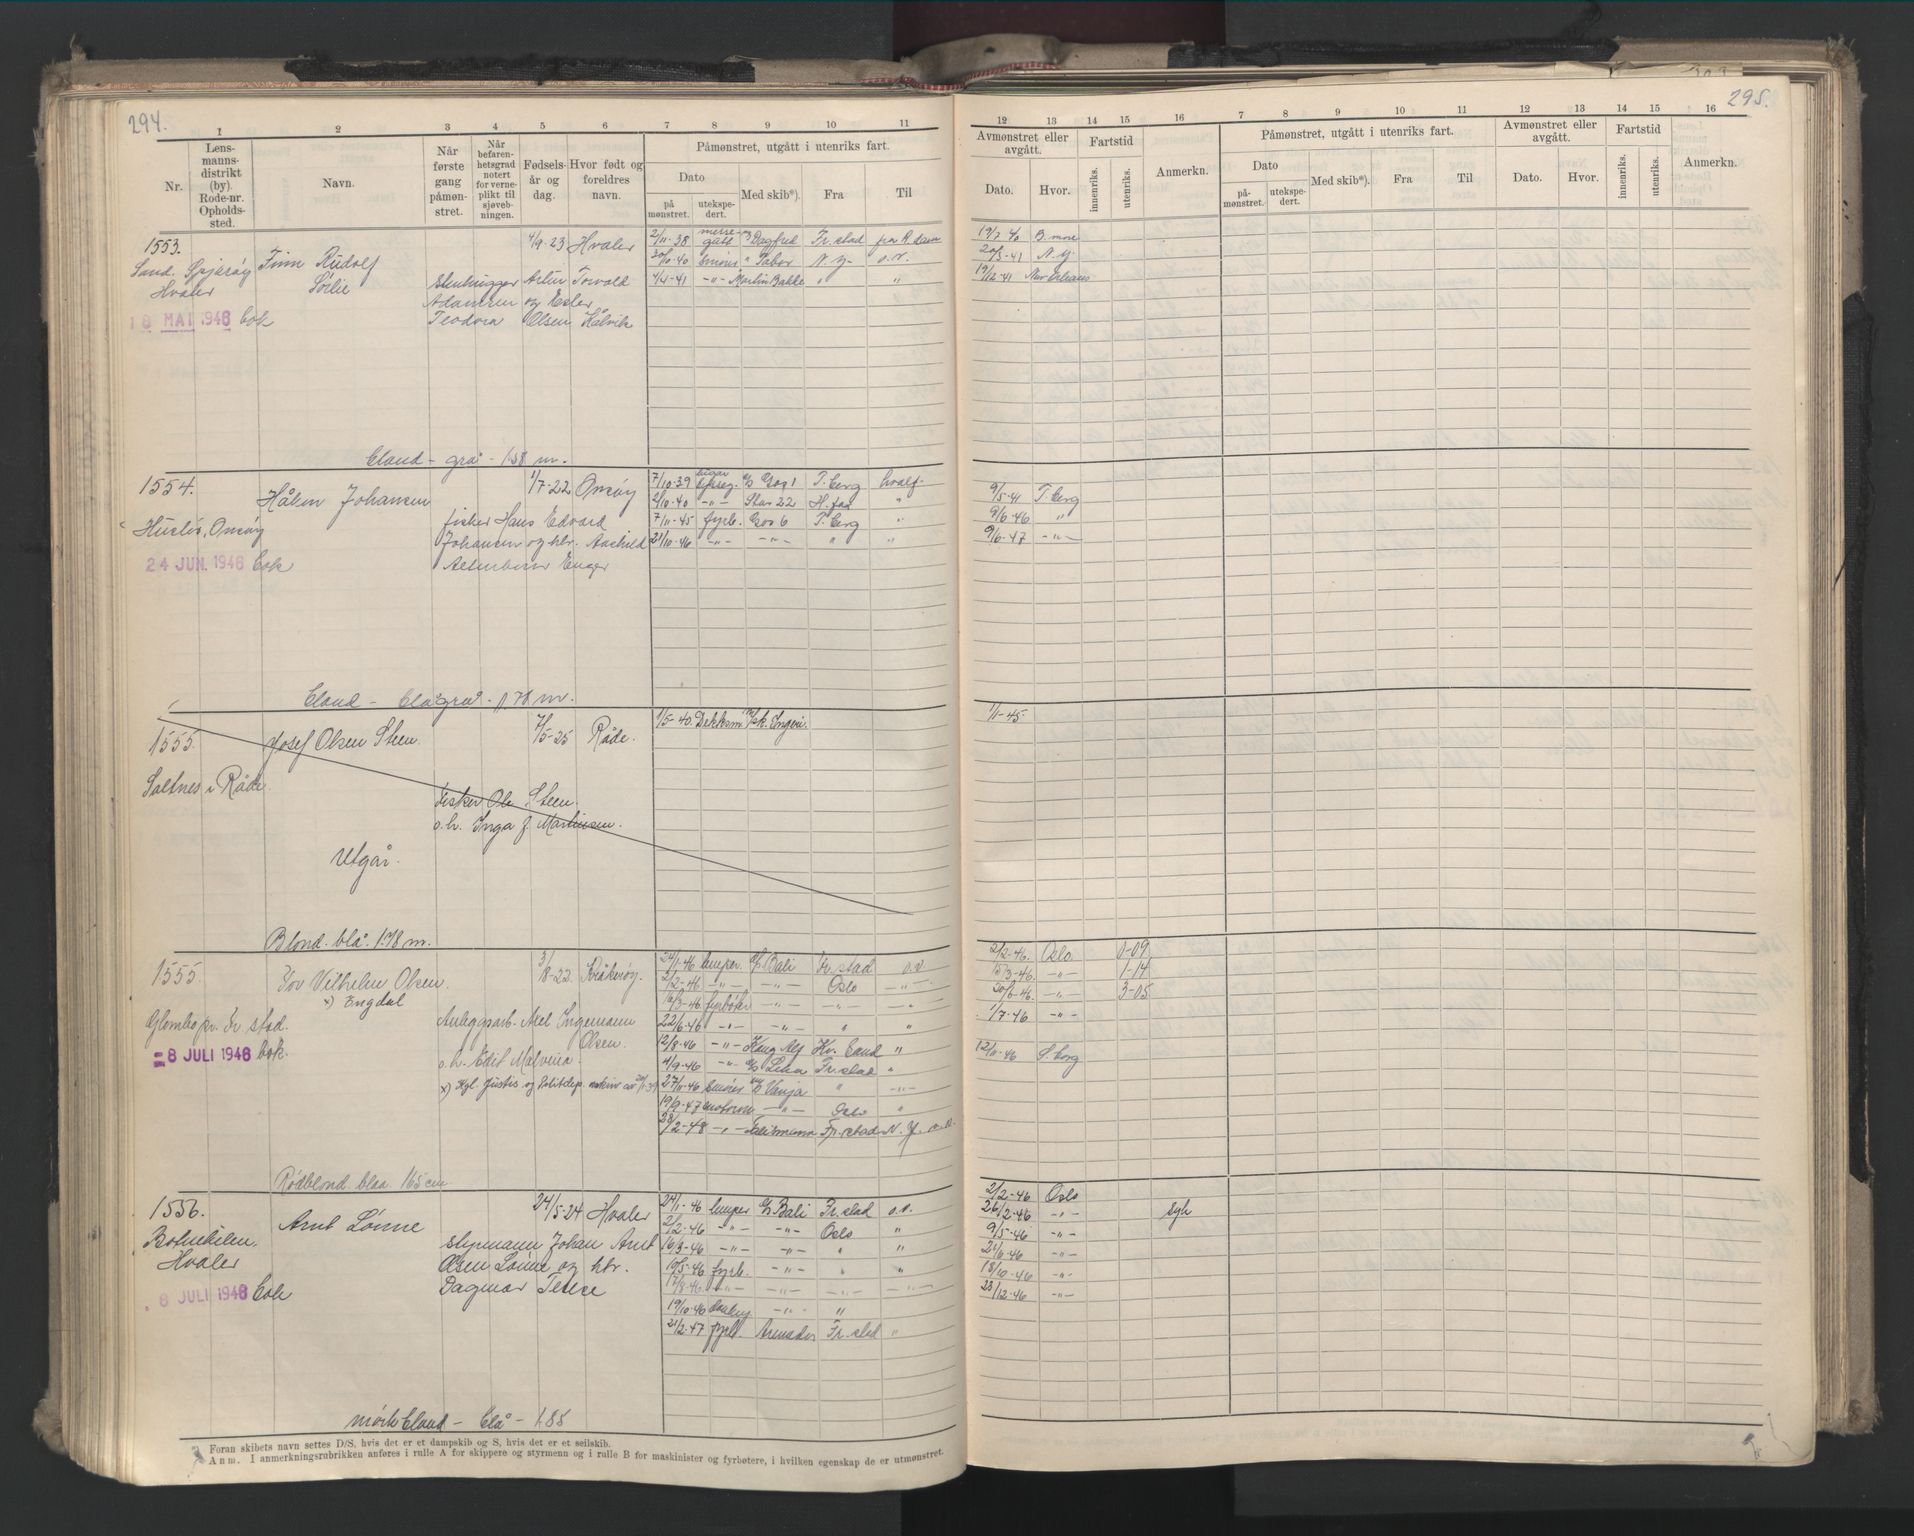 294.
1 2 3 4 5 6 7 8 9 10 11
Nr.
Lens-
manns-
distrikt
(by).
Rode-nr.
Opholds-
sted.
Navn.
Når
første
gang
påmøn-
stret.
Når
befaren-
hetsgrad
notert
for verne-
plikt til
sjøveb-
ningen.
Fødsels-
år og
dag.
Hvor født og
foreldres
navn.
Påmønstret, utgått i utenriks fart.
Dato
på
mønstret.
utekspe-
dert.
Med skib*).
Fra
Til
1553. 4/9-23 Hvaler 2/11-38 messe- gutt Dagfred Fr.stad
Sand. Spjærøy Finn Rudolf 30/10-40 Smøris " Tabor N.Y. o.v.
Hvaler Sølie Stenhugger Artur Torvald 4/4-41 -"- Martin Bakke " "
Adamsen og Ester
18 MAI 1946 bok Teodora Olsen Hålvik
bland - grå - 1.58 m.
1554. 1/7-22 Onsøy 7/10-39 Gos 1 T.berg hvalf.
Håkon Johansen 2/10-40 -"- Star 22 "
Huslø, Onsøy fisker Hans Edvard 7/11-45 fyrb. Gos 6 T.berg "
Johansen og htr. Aashild 21/10-46 -"- -"- " "
24 JUN. 1946 bok Enger
bland - blågrå - 1.78 m.
1555. Josef Olsen Steen. 7/5-25 Råde. 1/5-40. Dekksm. M/sk. Ingeri.
Saltnes i Råde.
Fisker Ole Steen.
o.h. Inga f. Martinsen.
Utgår.
Blond. blå. 1.78 m.
1555. Tor Vilhelm Olsen. 3/8-22. Kråkerøy. 24/1-46 lemper. D/S Bali Fr.stad o.v.
x) Engdal 2/2-46 -"- -"- Oslo -"-
16/3-46 fyrbøter -"- -"- -"-
Glombo pr. Fr.stad. Anleggsarb. Axel Ingemann 22/6-46 -"- -"- " "
= 8 JULI 1946 bok. Olsen. 12/8-46 -"- Kong Alf Kr.sand "
o.h. Edit Malvina. 4/9-46 -"- Fr.stad "
x) Kgl. Justis og Politidep. 27/11-46 Smøres Vanja " -"-
19/9-47 motorm. -"- Oslo "
28/2-48 -"- Talismann Fr.stad N.Y. o.v.
Rødblond. blaa. 165 cm
1556. 24/5-24 Hvaler 24/1-46 lemper D/S Bali Fr.stad o.v.
Arnt Lønne 2/2-46 -"- -"- Oslo "
Botnekilen. styrmann Johan Arnt 16/3-46 -"- -"- " "
Hvaler Olsen Lønne og htr. 10/5-46 fyrb. -"- " "
8 JULI 1946 bok Dagmar Terese 17/8-46 -"- -"- -"- -"-
19/10-46 donkey -"- "
21/2-47 fyrb. Fr.stad "
mørkbland - blå - 1.85
*) Foran skibets navn settes D/S, hvis det er et dampskib og S, hvis det er et seilskib.
Anm. I anmerkningsrubrikken anføres i rulle A for skippere og styrmenn og i rulle B for maskinister og fyrbøtere, i hvilken egenskap de er utmønstret.
295.
12 13 14 15 16 7 8 9 10 11 12 13 14 15 16
Avmønstret eller
avgått.
Dato.
Hvor.
Fartstid
innenriks.
utenriks.
Anmerkn.
Påmønstret, utgått i utenriks fart.
Dato
på-
mønstret.
utekspe-
dert.
Med skib*).
Fra
Til
Avmønstret eller
avgått.
Dato.
Hvor.
Fartstid
innenriks.
utenriks.
Anmerkn.
19/7 40 B.more
20/3-41 N.Y.
19/12-41 New Orleans
9/5-41 T.berg
9/6-46 "
9/6-47 -"-
1/1-45.
2/2-46. Oslo 0-09
15/3-46. -"- 1-14
20/6-46. -"- 3-05
1/7-46 -"-
12/11-46 S.borg
2/2-46 Oslo
26/2-46 -"- syk
9/5-46 -"-
21/6-46 -"-
18/10-46 -"-
23/12-46 -"-